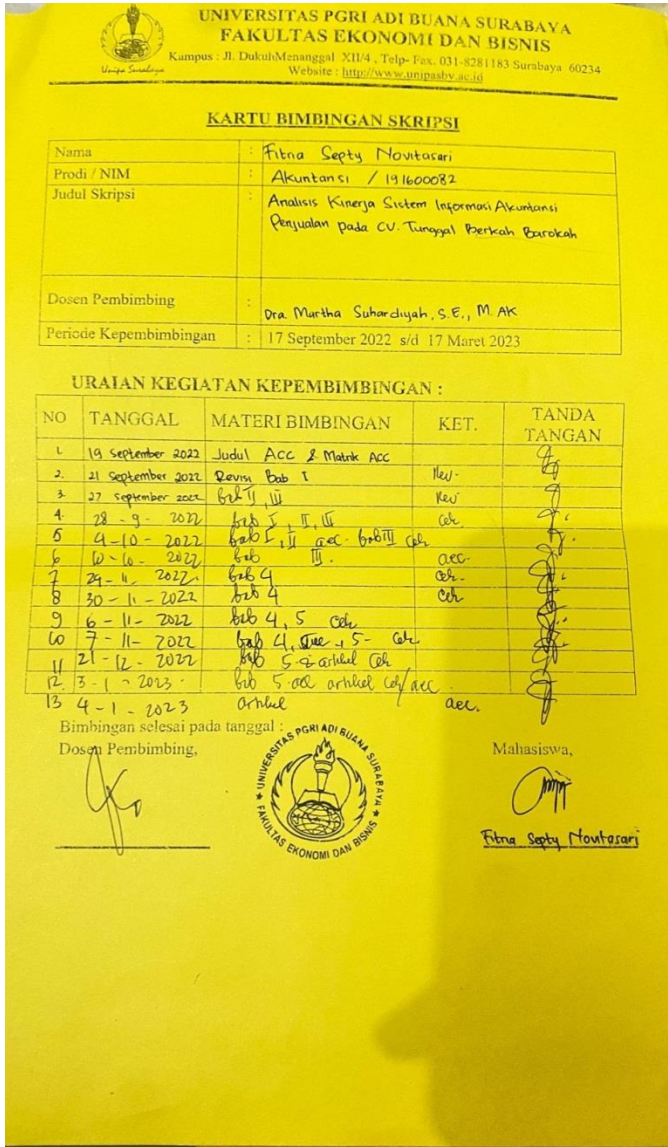 UNIVERSITAS PGRI ADI BUANA SURABAYA
FAKULTAS EKONOMI DAN BISNIS
Kampus : Jl. DukuhMenanggal XII/4 , Telp- Fax. 031-8281183 Surabaya 60234
Website : http://www.unipasby.ac.id
Unipa Surabaya
KARTU BIMBINGAN SKRIPSI
Nama : Fitria Septy Novitasari
Prodi / NIM : Akuntansi / 191600082
Judul Skripsi : Analisis Kinerja Sistem Informasi Akuntansi
Penjualan pada CV. Tunggal Berkah Barokah
Dosen Pembimbing : Dra. Martha Suhardiyah, S.E., M. AK
Periode Kepembimbingan : 17 September 2022 s/d 17 Maret 2023
URAIAN KEGIATAN KEPEMBIMBINGAN :
NO TANGGAL MATERI BIMBINGAN KET. TANDA TANGAN
1. 19 September 2022 Judul ACC & Matrik ACC
2. 21 September 2022 Revisi Bab I Rev.
3. 27 September 2022 bab II, III Rev
4. 28 - 9 - 2022 bab I, II, III cek
5 4 - 10 - 2022 bab I, II acc. bab III cek
6 10 - 10 - 2022 bab III. acc.
7 29 - 11 - 2022. bab 4 cek.
8 30 - 11 - 2022 bab 4 cek
9 6 - 11 - 2022 bab 4, 5 cek
10 7 - 11 - 2022 bab 4, acc, 5 - cek
11 21 - 12 - 2022 bab 5 & artikel cek
12. 3 - 1 - 2023. bab 5 acc artikel cek/acc.
13 4 - 1 - 2023 artikel acc.
Bimbingan selesai pada tanggal :
Dosen Pembimbing, Mahasiswa,
UNIVERSITAS PGRI ADI BUANA SURABAYA
FAKULTAS EKONOMI DAN BISNIS
Fitria Septy Novitasari